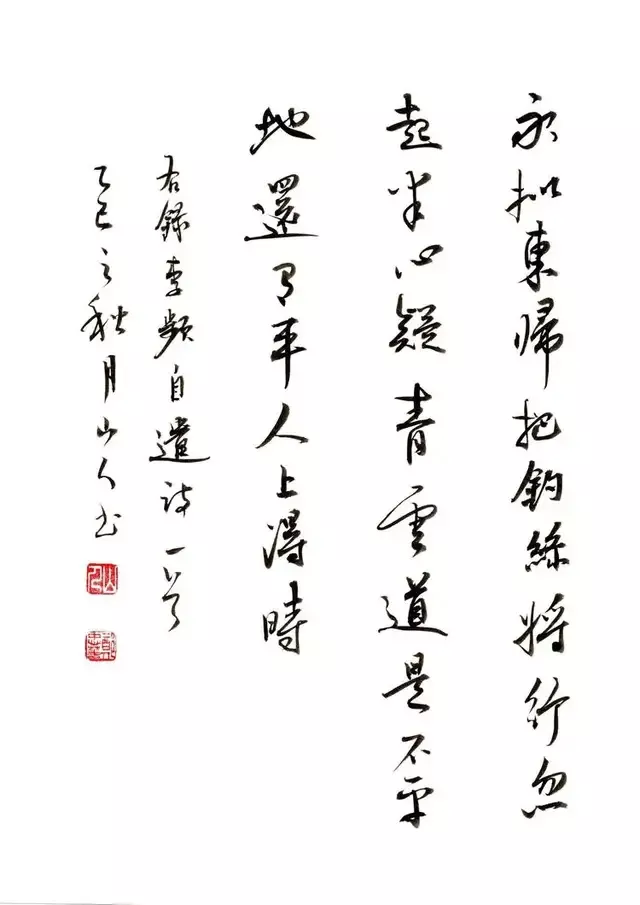 永拟東歸把釣絲將行忽
起半心疑青雲道是不平
地還有平人上得時
右錄李頻自遣詩一首
乙巳之秋月山人书
山人